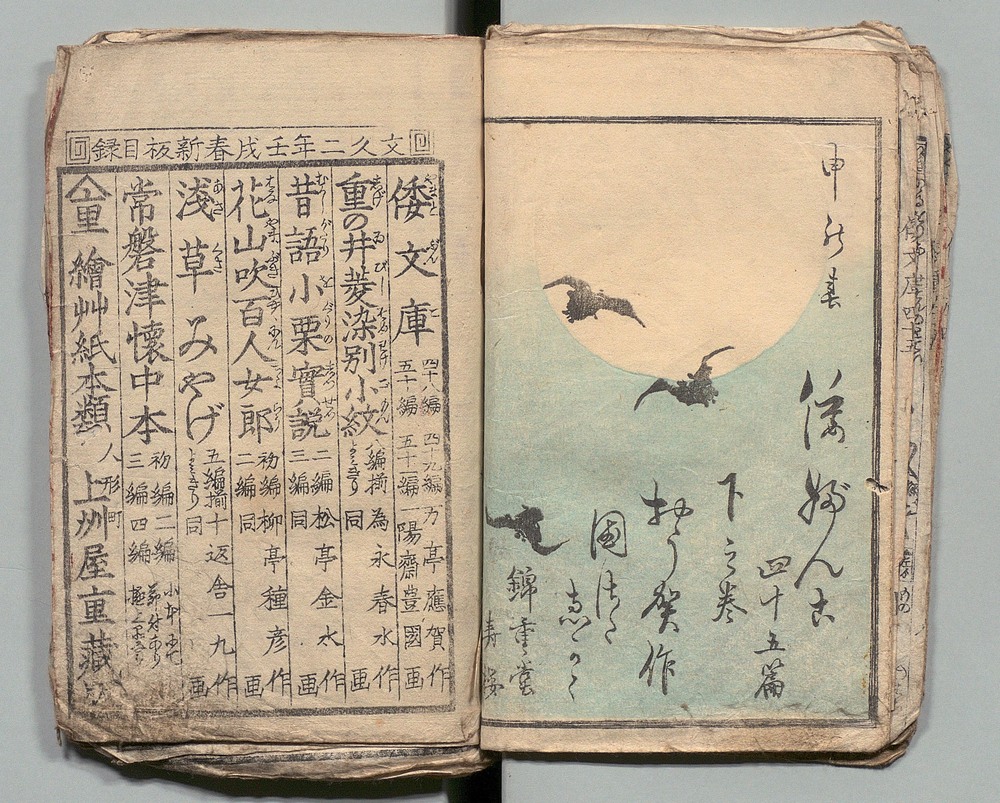 申の春
倭婦んこ
四十五篇
下之巻
おうが作
国貞ゑがく
錦重堂
寿梓
文久二年壬戌春新板目録
倭文庫 四十八編 四十九編 五十編 五十一編 万亭應賀作 一陽齋豊國画
重の井菱染別小紋 二編揃 為永春水作 同画
昔語小栗實説 二編 三編 松亭金水作 同画
花山吹百人女郎 初編 二編 柳亭種彦作 同画
淺草みやげ 五編揃 十返舎一九作 同画
常磐津懐中本 初編 二編 三編 四編
重 繪艸紙本類 人形町 上州屋重藏